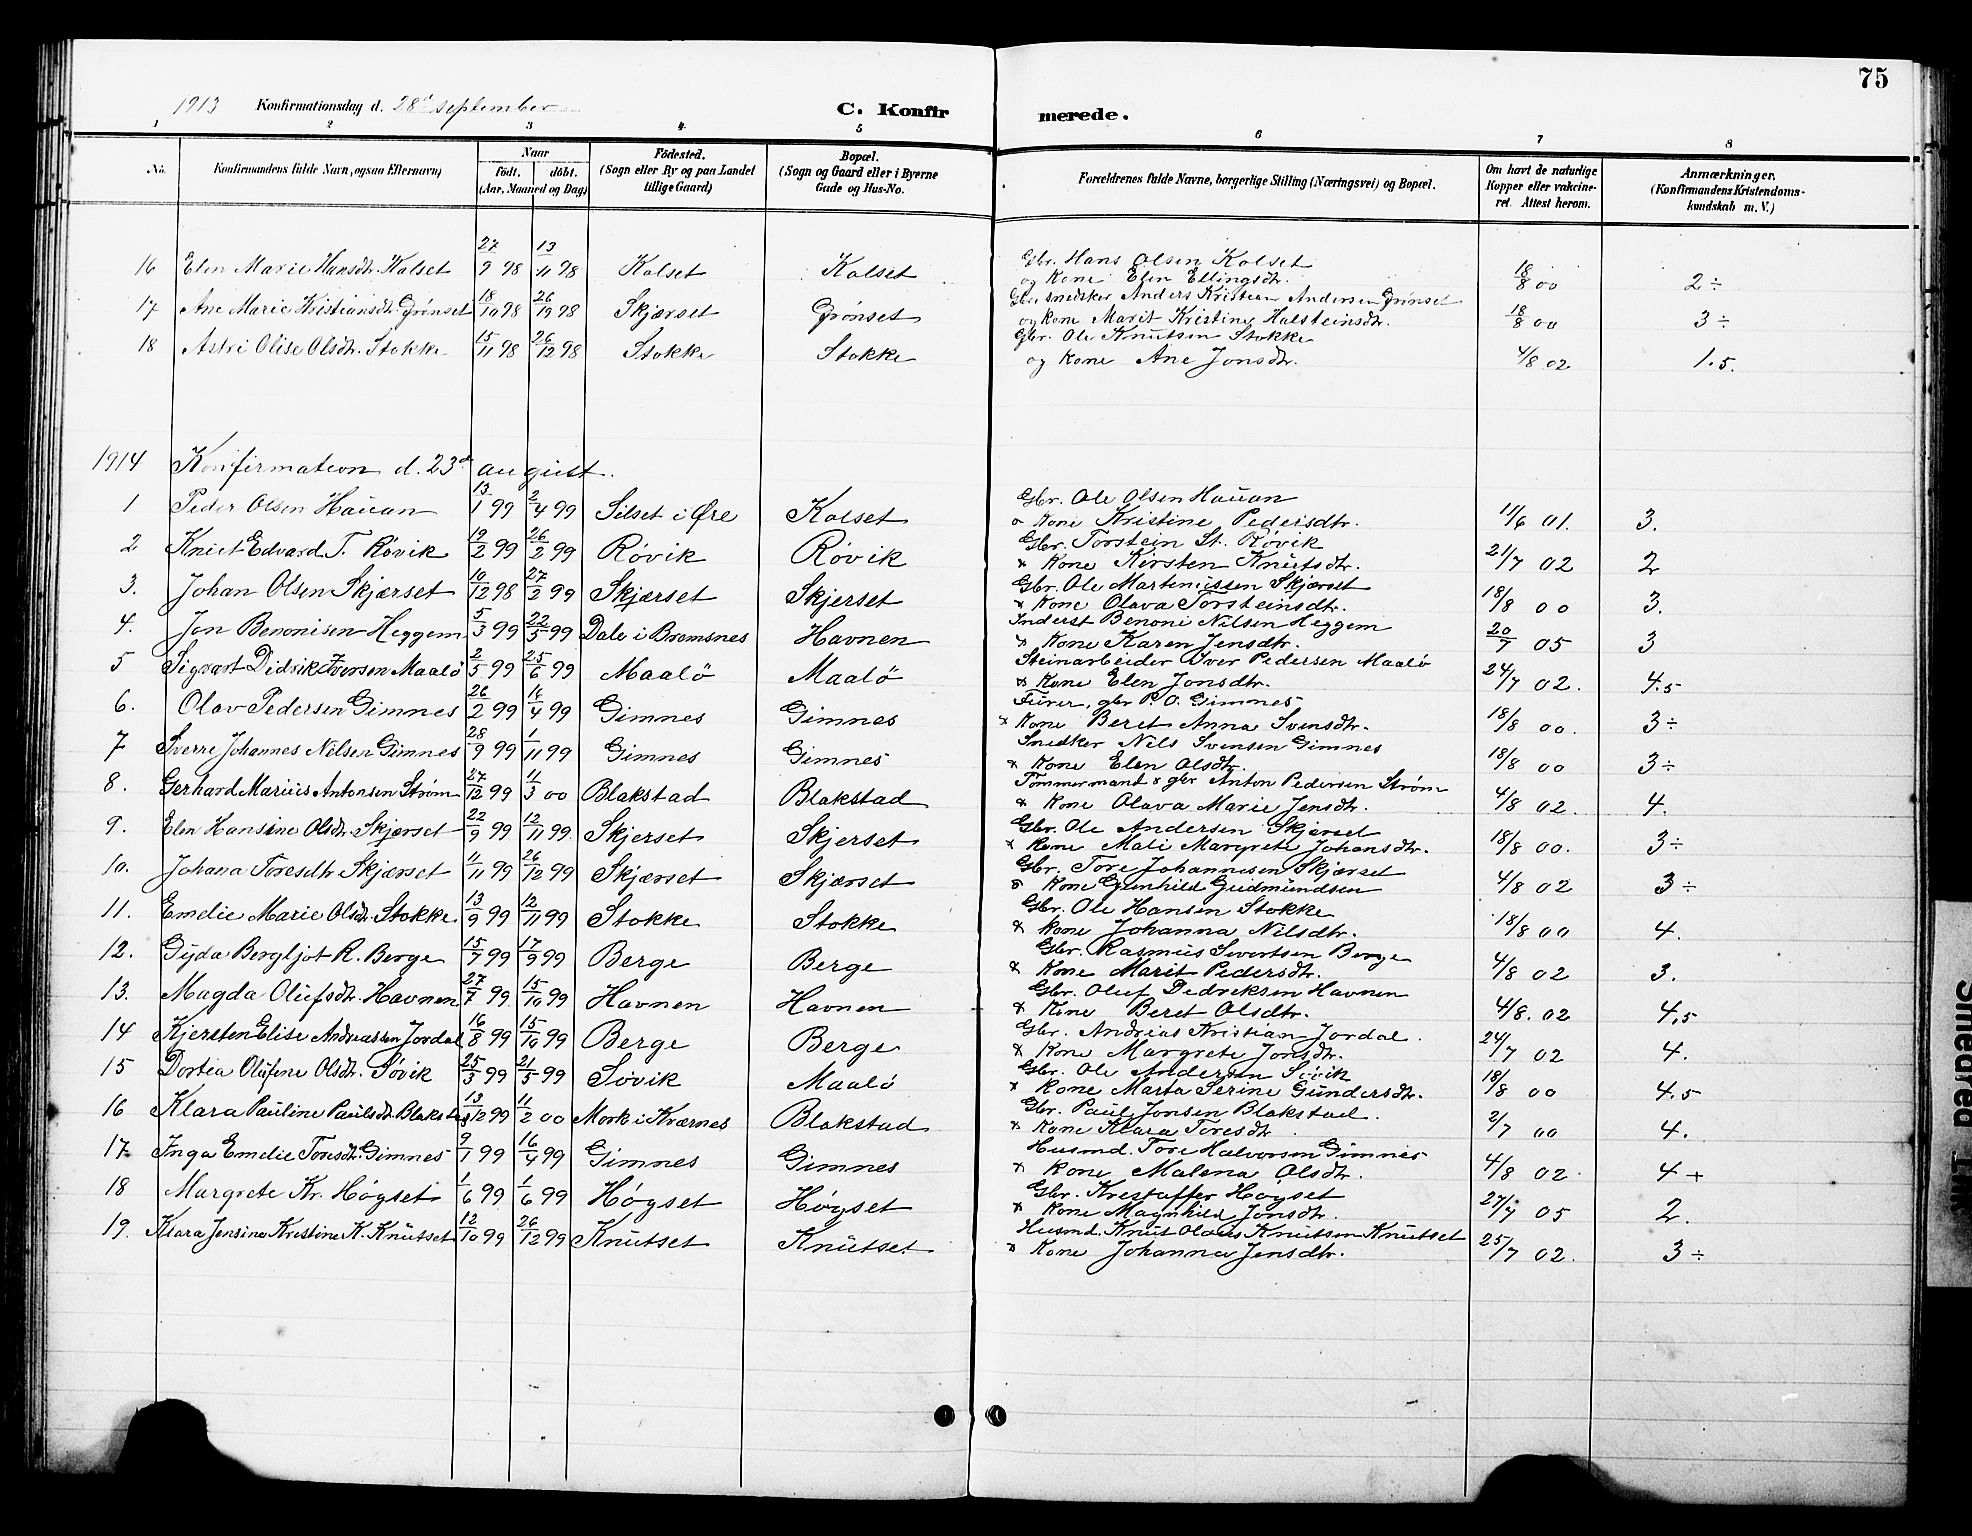 75
1913 Konfirmationsdag d. 28d september
C. Konfirmerede.
1 2 3 4 5 6 7 8
No.
Konfirmandens fulde Navn, ogsaa Efternavn)
Naar
födt. döbt.
(Aar, Maaned og Dag)
Födested.
(Sogn eller By og paa Landet tillige Gaard)
Bopæl.
(Sogn og Gaard eller i Byerne Gade og Hus-No.
Forældrenes fulde Navne, borgerlige Stilling (Næringsvei) og Bopæl.
Om havt de naturlige Kopper eller vakcineret. Attest herom.
Anmærkninger.
(Konfirmandens Kristendomskundskab m. V.)
16 Elen Marie Hansdtr. Kalset 27/9 98 13/11 98 Kalset Kalset Gbr. Hans Olsen Kalset
og kone Elen Ellingsdtr. 18/8 00 2 ÷
17 Ane Marie Kristiansdtr. Grønset 18/10 98 26/12 98 Skjærset Grønset Gbr, snedker Anders Kristian Andersen Grønset
og kone Marit Kristine Halsteinsdtr. 18/8 00 3 ÷
18 Astri Olise Olsdtr. Stokke 15/11 98 26/12 98 Stokke Stokke Gbr. Ole Knutsen Stokke
og kone Ane Jonsdtr. 4/8 02 1.5.
1914 Konfirmation d. 23d august.
1 Peder Olsen Hauan 13/1 99 2/4 99 Silset i Øre Kalset Gbr. Ole Olsen Hauan
kone Kristine Pedersdtr. 11/6 01. 3.
2 Knut Edvard T. Røvik 19/2 99 26/2 99 Røvik Røvik Gbr. Torstein St. Røvik
& kone Kirsten Knutsdtr. 21/7 02 2
3. Johan Olsen Skjærset 10/12 98 27/2 99 Skjærset Skjerset Gbr. Ole Martinussen Skjærset
& kone Olava Torsteinsdtr. 18/8 00 3.
4. Jon Benonisen Heggem 5/3 99 22/5 99 Dale i Bremsnes Havnen Inderst Benoni Nilsen Heggem
& kone Karen Jensdtr. 20/7 05 3
5 Sigvart Didrik Iversen Maalö 2/5 99 25/6 99 Maalö Maalö Steinarbeider Iver Pedersen Maalö
& kone Elen Jonsdtr. 24/7 02. 4.5
6. Olav Pedersen Gimnes 26/2 99 16/4 99 Gimnes Gimnes Furer, gbr P. O. Gimnes
& kone Beret Anna Svensdtr. 18/8 00. 3 ÷
7 Sverre Johannes Nilsen Gimnes 28/9 99 1/11 99 Gimnes Gimnes Snedker Nils Svensen Gimnes
& kone Elen Olsdtr. 18/8 00 3 ÷
8. Gerhard Marius Antonsen Strøm 27/12 99 11/3 00 Blakstad Blakstad Tømmermand & gbr Anton Pedersen Strøm
& kone Olava Marie Jensdtr. 4/8 02. 4.
9. Elen Hansine Olsdtr. Skjærset 22/9 99 12/11 99. Skjerset Skjerset Gbr. Ole Andersen Skjærset
& kone Mali Margrete Johansdtr. 18/8 00. 3 ÷
10. Johana Toresdtr Skjærset 11/11 99 26/12 99 Skjærset Skjærset Gbr. Tore Johannesen Skjærset
& kone Gunhild Gudmundsen 4/8 02 3 ÷
11. Emelie Marie Olsdtr. Stokke. 13/9 99 12/11 99 Stokke Stokke Gbr. Ole Hansen Stokke
& kone Johanna Nilsdtr. 18/8 00 4.
12. Gyda Bergljot R. Berge 15/7 99 17/9 99 Berge Berge Gbr. Rasmus Sivertsen Berge
& kone Marit Pedersdtr. 4/8 02 3.
13. Magda Olufsdtr. Havnen 27/7 99 15/10 99 Havnen Havnen Gbr. Oluf Didriksen Havnen
& kone Beret Olsdtr. 4/8. 02 4,5
14 Kjersten Elise Andreassen Jordal 16/8 99 15/10 99 Berge Berge Gbr. Andreas Kristian Jordal.
& kone Margrete Jonsdtr. 24/7 02 4.
15 Dortea Olufine Olsdtr. Søvik 25/3 99 21/5 99 Søvik Maalö Gbr. Ole Andersen Søvik
& kone Marta Serine Gundersdtr. 18/8 00 4,5
16 Klara Pauline Paulsdtr. Blakstad 13/12 99 11/2 00 Mork i Kværnes Blakstad Gbr. Paul Jonsen Blakstad.
& kone Klara Toresdtr 2/7 00 4.
17 Inga Emelie Toresdtr. Gimnes 9/1 99 16/4 99 Gimnes Gimnes Husmd. Tore Halvorsen Gimnes
& kone Malena Olsdtr. 4/8 02. 4 +
18 Margrete Kr. Høgset 1/6 99 1/6 99 Høgset Høgset Gbr. Kristoffer Høgset
& kone Magnhild Jonsdtr. 27/7 05 2.
19. Klara Jensine Kristine K. Knutset 12/10 99 26/12 99 Knutset Knutset Husmd. Knut Olaus Knutsen Knutset
& kone Johanna Jensdtr. 25/7 02. 3 ÷